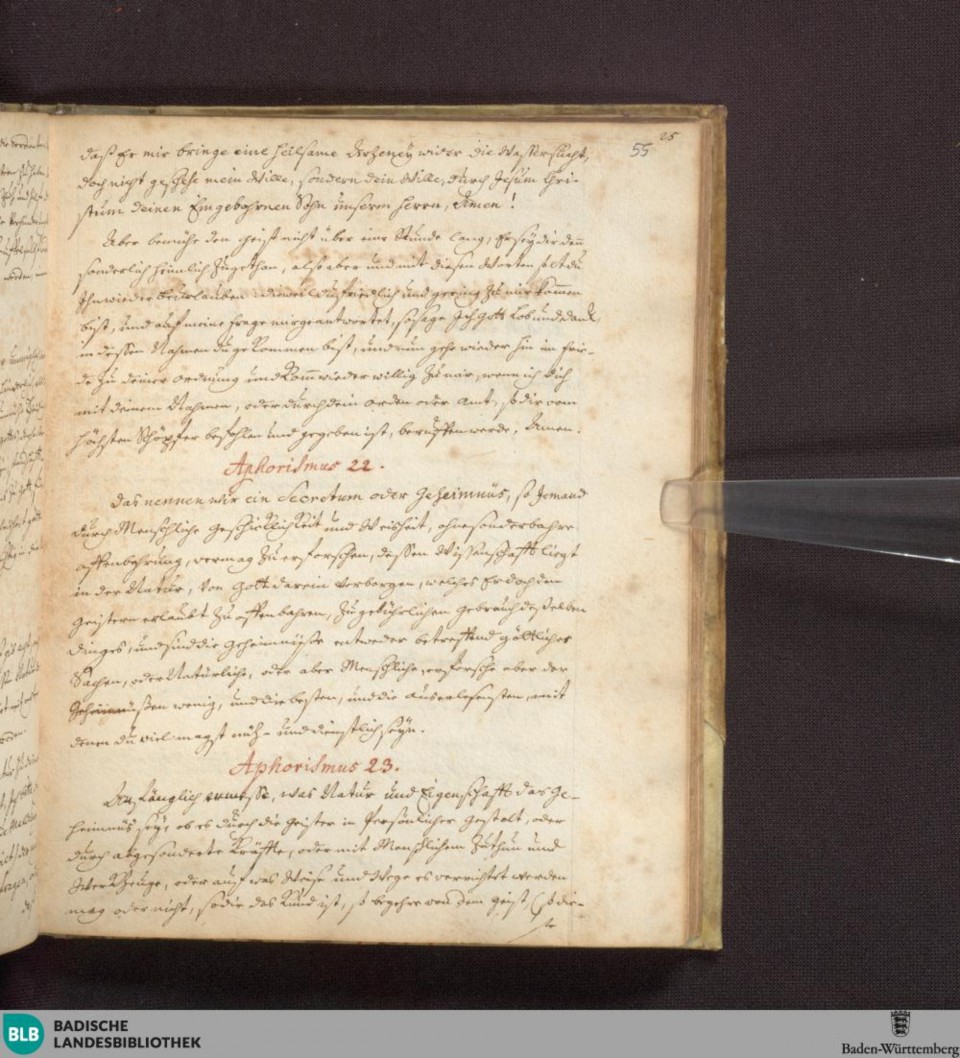 25
55
daß Er mir bringe eine heilsame Artzeney wider die Wassersucht,
doch nicht geschehe mein Wille, sondern dein Wille, durch Jesum Chri-
stum deinen Eingebohrnen Sohn unserm Herrn, Amen!
Aber bemühe den geist nicht über eine Stunde lang, Er sey dir denn
sonderlich heimlich zugethan, alß aber und mit diesen Worten solt du
Ihn wieder beurlauben: dieweil du friedlich und gering zu mir kommen
bist, und auf meine frage mir geantwortet, so sage Ich Gott Lob und danck,
in dessen Nahmen du gekommen bist, und nun gehe wieder hin im frie-
de zu deiner ordnung und komm wieder willig zu mir, wenn ich dich
mit deinem Nahmen, oder durch dein orden oder amt, so dir vom
höchsten Schöpfer befohlen und gegeben ist, beruffen werde, Amen.
Aphorismus 22.
Das nennen wir ein Secretum oder Geheimnüs, so Jemand
durch Menschliche geschicklichkeit und Weisheit, ohne sonderbahre
offenbahrung, vermag zu erforschen, dessen Wissenschafft liegt
in der Natur, von Gott darein verborgen, welches Er doch den
geistern erlaubt zu offenbahren, zu gebührlichen gebrauch desselben
dinges, und sind die geheimnüße entweder betreffend göttlicher
Sachen, oder Natürliche, oder aber Menschliche, erforsche aber der
Geheimnüßen wenig, und die besten, und die auserlesensten, mit
denen du viel magst nütz- und dienstlich seyn.
Aphorismus 23.
Anfänglich ermesse, was Natur und Eigenschafft das Ge-
heimnüs sey, ob es durch die geister in Persönlicher gestalt, oder
durch abgesonderte Kräffte, oder mit Menschlichem Zuthun und
Werckzeuge, oder auf was Weise und Wege es verrichtet werden
mag oder nicht, so dir das kund ist, so begehre von dem geist, (so die-
BLB BADISCHE
LANDESBIBLIOTHEK
Baden-Württemberg